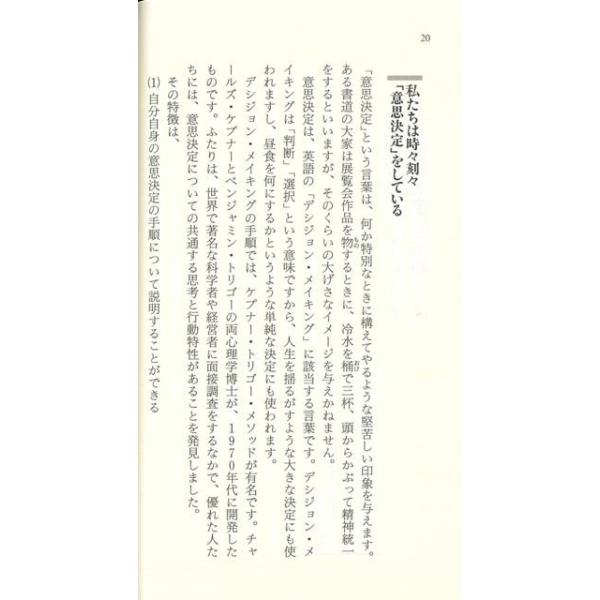 20
私たちは時々刻々
「意思決定」をしている
「意思決定」という言葉は、何か特別なときに構えてやるような堅苦しい印象を与えます。
ある書道の大家は展覧会作品を物するときに、冷水を桶で三杯、頭からかぶって精神統一
をするといいますが、そのくらいの大げさなイメージを与えかねません。
意思決定は、英語の「デシジョン・メイキング」に該当する言葉です。デシジョン・メ
イキングは「判断」「選択」という意味ですから、人生を揺るがすような大きな決定にも使
われますし、昼食を何にするかというような単純な決定にも使われます。
デシジョン・メイキングの手順では、ケプナー・トリゴー・メソッドが有名です。チャ
ールズ・ケプナーとベンジャミン・トリゴーの両心理学博士が、1970年代に開発した
ものです。ふたりは、世界で著名な科学者や経営者に面接調査をするなかで、優れた人た
ちには、意思決定についての共通する思考と行動特性があることを発見しました。
その特徴は、
(1) 自分自身の意思決定の手順について説明することができる